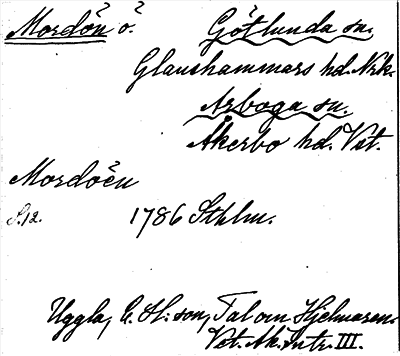 Mordön ö. Götlunda sn.
Glanshammars hd. Nrk.
Arboga sn.
Åkerbo hd. Vst.
Mordöen
S.12. 1786 Sthlm.
Uggla, C. Ol:son, Tal om Hjelmaren.
Vet. Ak. Intr. III.